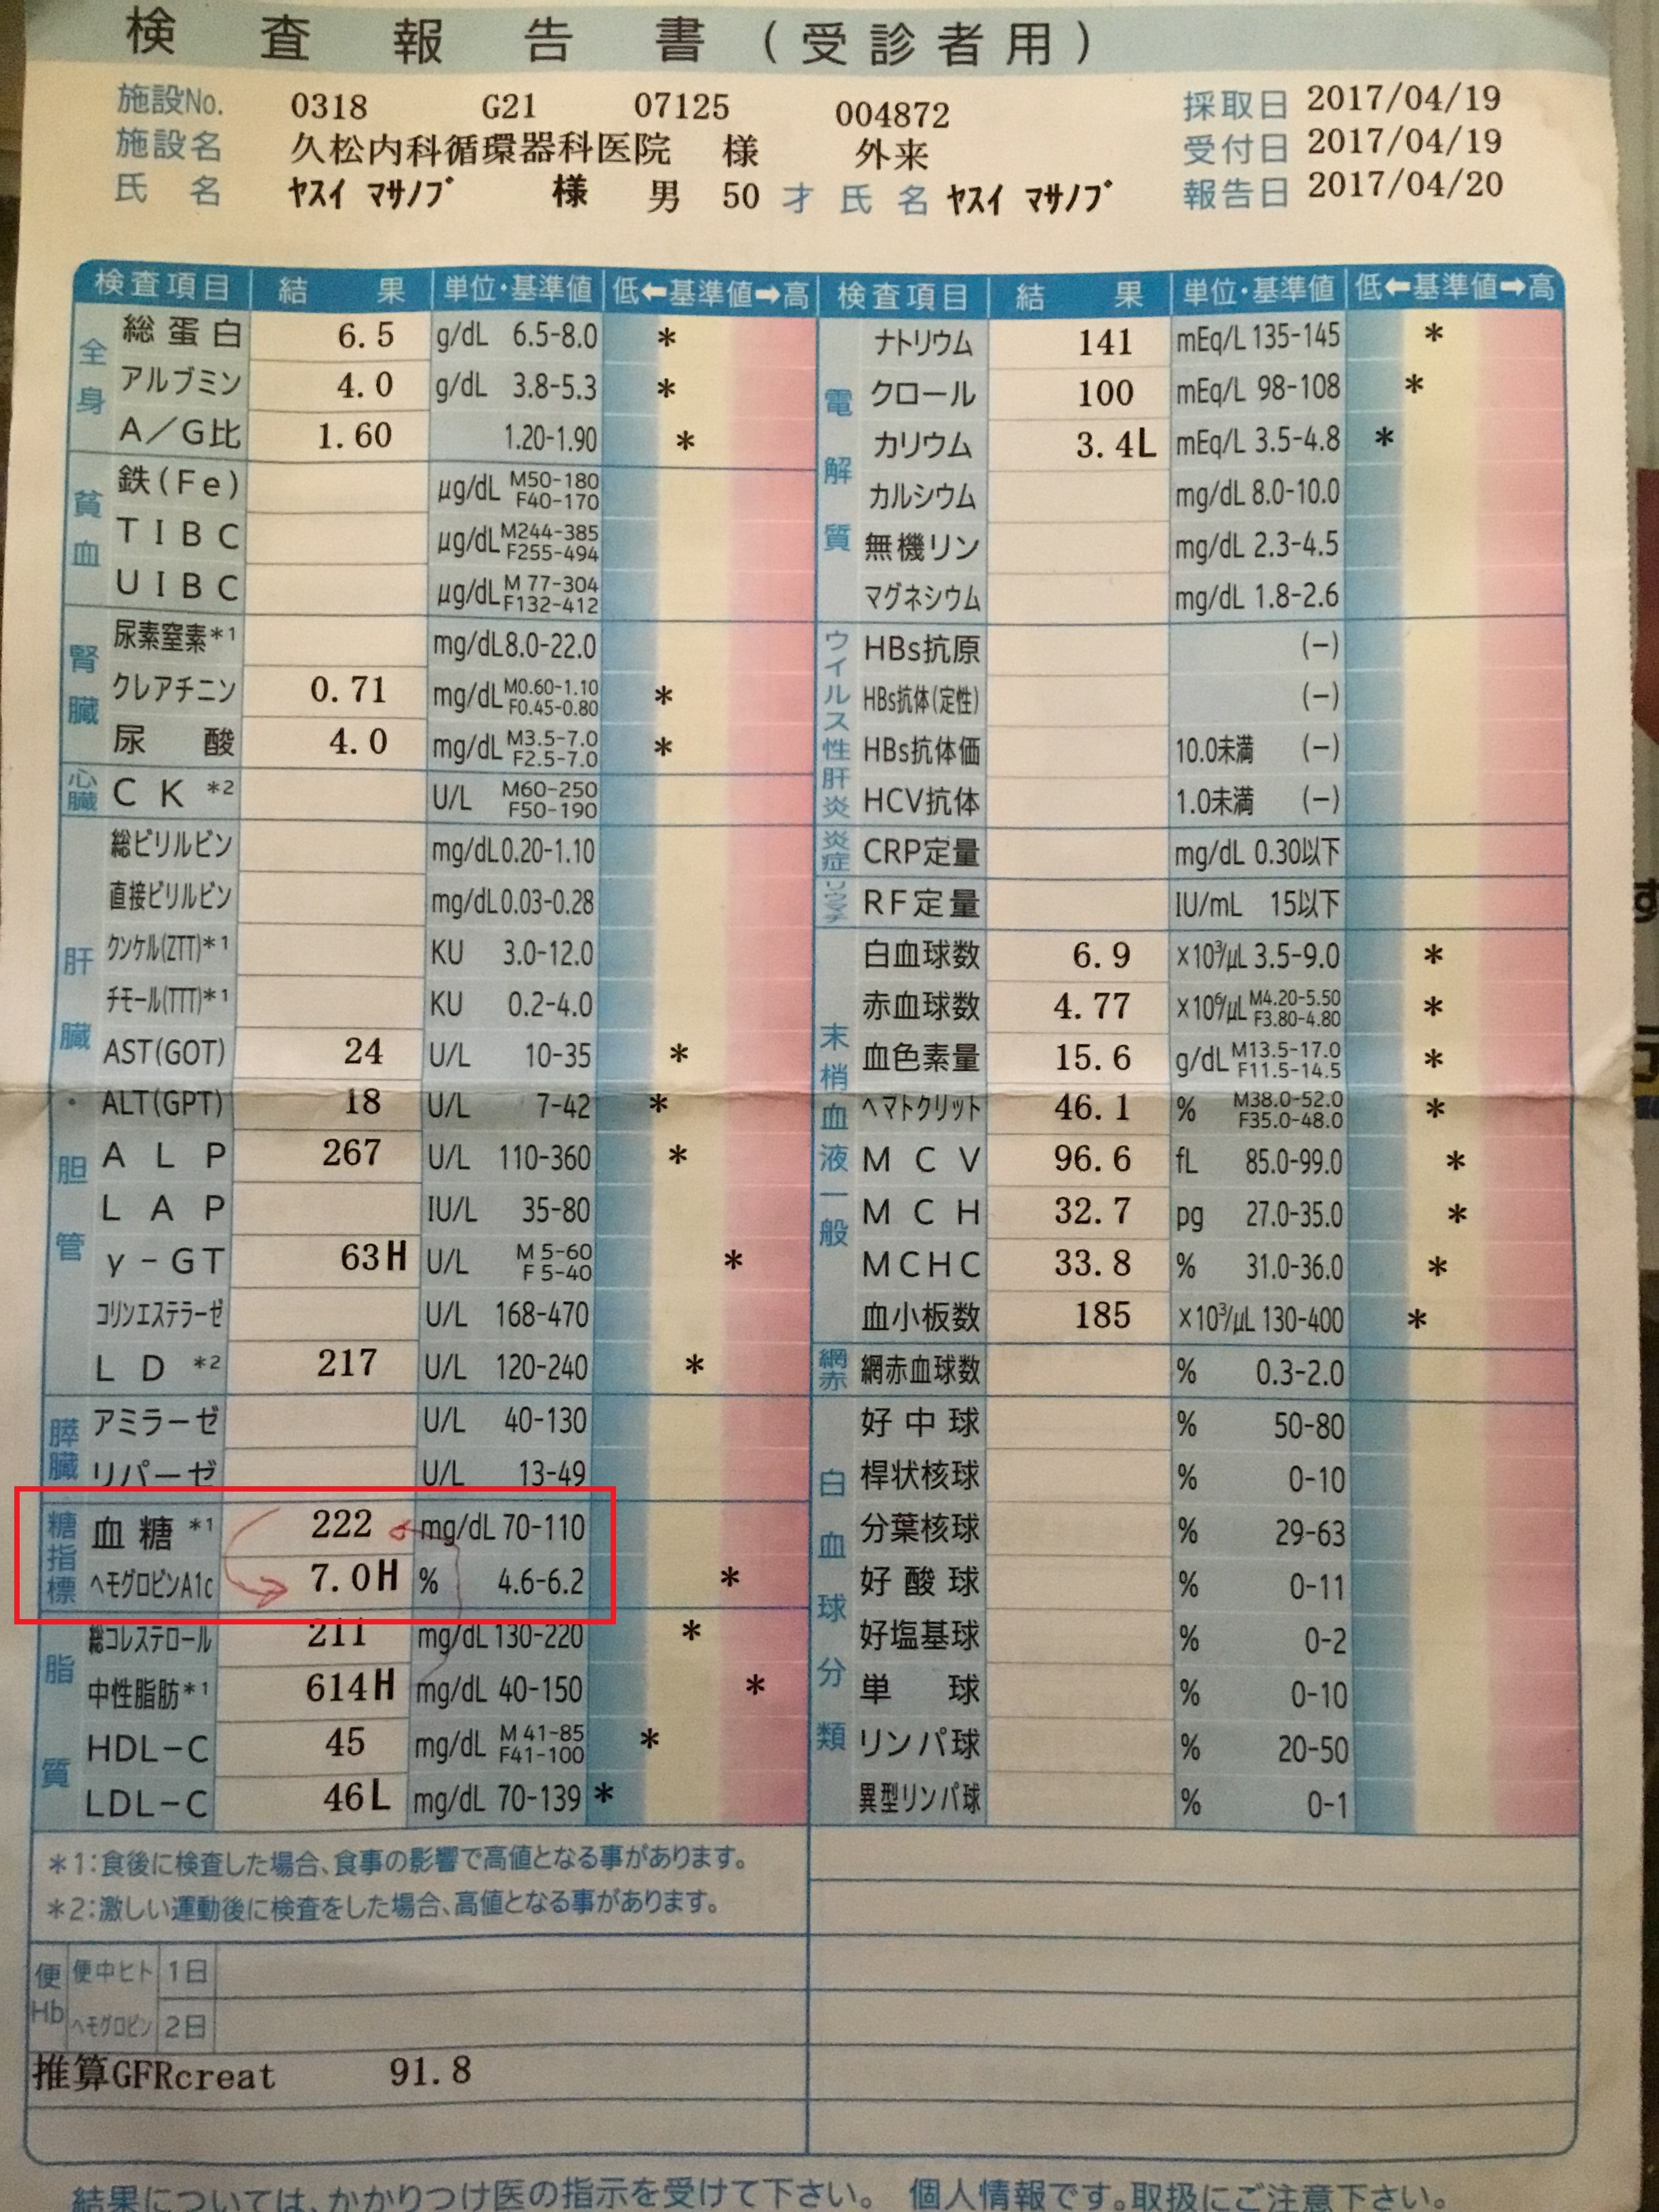 検査報告書(受診者用)
施設No. 0318 G21 07125 004872 採取日 2017/04/19
施設名 久松内科循環器科医院 様 外来 受付日 2017/04/19
氏名 ヤスイ マサノブ 様 男 50 才 氏名 ヤスイ マサノブ 報告日 2017/04/20
検査項目 結果 単位・基準値 低←基準値→高 検査項目 結果 単位・基準値 低←基準値→高
全身
総蛋白 6.5 g/dL 6.5-8.0 *
アルブミン 4.0 g/dL 3.8-5.3 *
A/G比 1.60 1.20-1.90 *
貧血
鉄(Fe) μg/dL M50-180 F40-170
TIBC μg/dL M244-385 F255-494
UIBC μg/dL M 77-304 F132-412
腎臓
尿素窒素*1 mg/dL 8.0-22.0
クレアチニン 0.71 mg/dL M0.60-1.10 F0.45-0.80 *
尿酸 4.0 mg/dL M3.5-7.0 F2.5-7.0 *
心臓
CK *2 U/L M60-250 F50-190
肝臓・胆管
総ビリルビン mg/dL 0.20-1.10
直接ビリルビン mg/dL 0.03-0.28
クンケル(ZTT)*1 KU 3.0-12.0
チモール(TTT)*1 KU 0.2-4.0
AST(GOT) 24 U/L 10-35 *
ALT(GPT) 18 U/L 7-42 *
ALP 267 U/L 110-360 *
LAP IU/L 35-80
γ-GT 63H U/L M 5-60 F 5-40 *
コリンエステラーゼ U/L 168-470
LD *2 217 U/L 120-240 *
膵臓
アミラーゼ U/L 40-130
リパーゼ U/L 13-49
糖指標
血糖 *1 222 mg/dL 70-110
ヘモグロビンA1c 7.0H % 4.6-6.2 *
脂質
総コレステロール 211 mg/dL 130-220 *
中性脂肪*1 614H mg/dL 40-150 *
HDL-C 45 mg/dL M 41-85 F41-100 *
LDL-C 46L mg/dL 70-139 *
*1:食後に検査した場合、食事の影響で高値となる事があります。
*2:激しい運動後に検査をした場合、高値となる事があります。
便Hb 便中ヒトヘモグロビン 1日
2日
推算GFRcreat 91.8
電解質
ナトリウム 141 mEq/L 135-145 *
クロール 100 mEq/L 98-108 *
カリウム 3.4L mEq/L 3.5-4.8 *
カルシウム mg/dL 8.0-10.0
無機リン mg/dL 2.3-4.5
マグネシウム mg/dL 1.8-2.6
ウイルス性肝炎
HBs抗原 (-)
HBs抗体(定性) (-)
HBs抗体価 10.0未満 (-)
HCV抗体 1.0未満 (-)
炎症
CRP定量 mg/dL 0.30以下
リウマチ
RF定量 IU/mL 15以下
末梢血液一般
白血球数 6.9 ×10³/μL 3.5-9.0 *
赤血球数 4.77 ×10⁶/μL M4.20-5.50 F3.80-4.80 *
血色素量 15.6 g/dL M13.5-17.0 F11.5-14.5 *
ヘマトクリット 46.1 % M38.0-52.0 F35.0-48.0 *
MCV 96.6 fL 85.0-99.0 *
MCH 32.7 pg 27.0-35.0 *
MCHC 33.8 % 31.0-36.0 *
血小板数 185 ×10³/μL 130-400 *
網赤
網赤血球数 % 0.3-2.0
白血球分類
好中球 % 50-80
桿状核球 % 0-10
分葉核球 % 29-63
好酸球 % 0-11
好塩基球 % 0-2
単球 % 0-10
リンパ球 % 20-50
異型リンパ球 % 0-1
結果については、かかりつけ医の指示を受けて下さい。 個人情報です。取扱にご注意下さい。